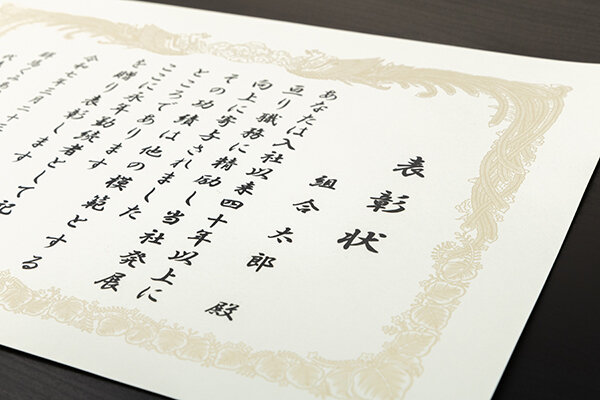 表彰状
組合太郎 殿
あなたは入社以来四十年以上に
亘り職務に精励し当社発展
向上に寄与されました
その功績は他の模範とする
ところであります
ここに永年勤続者として記
を贈り表彰します
令和七年三月二十三
代